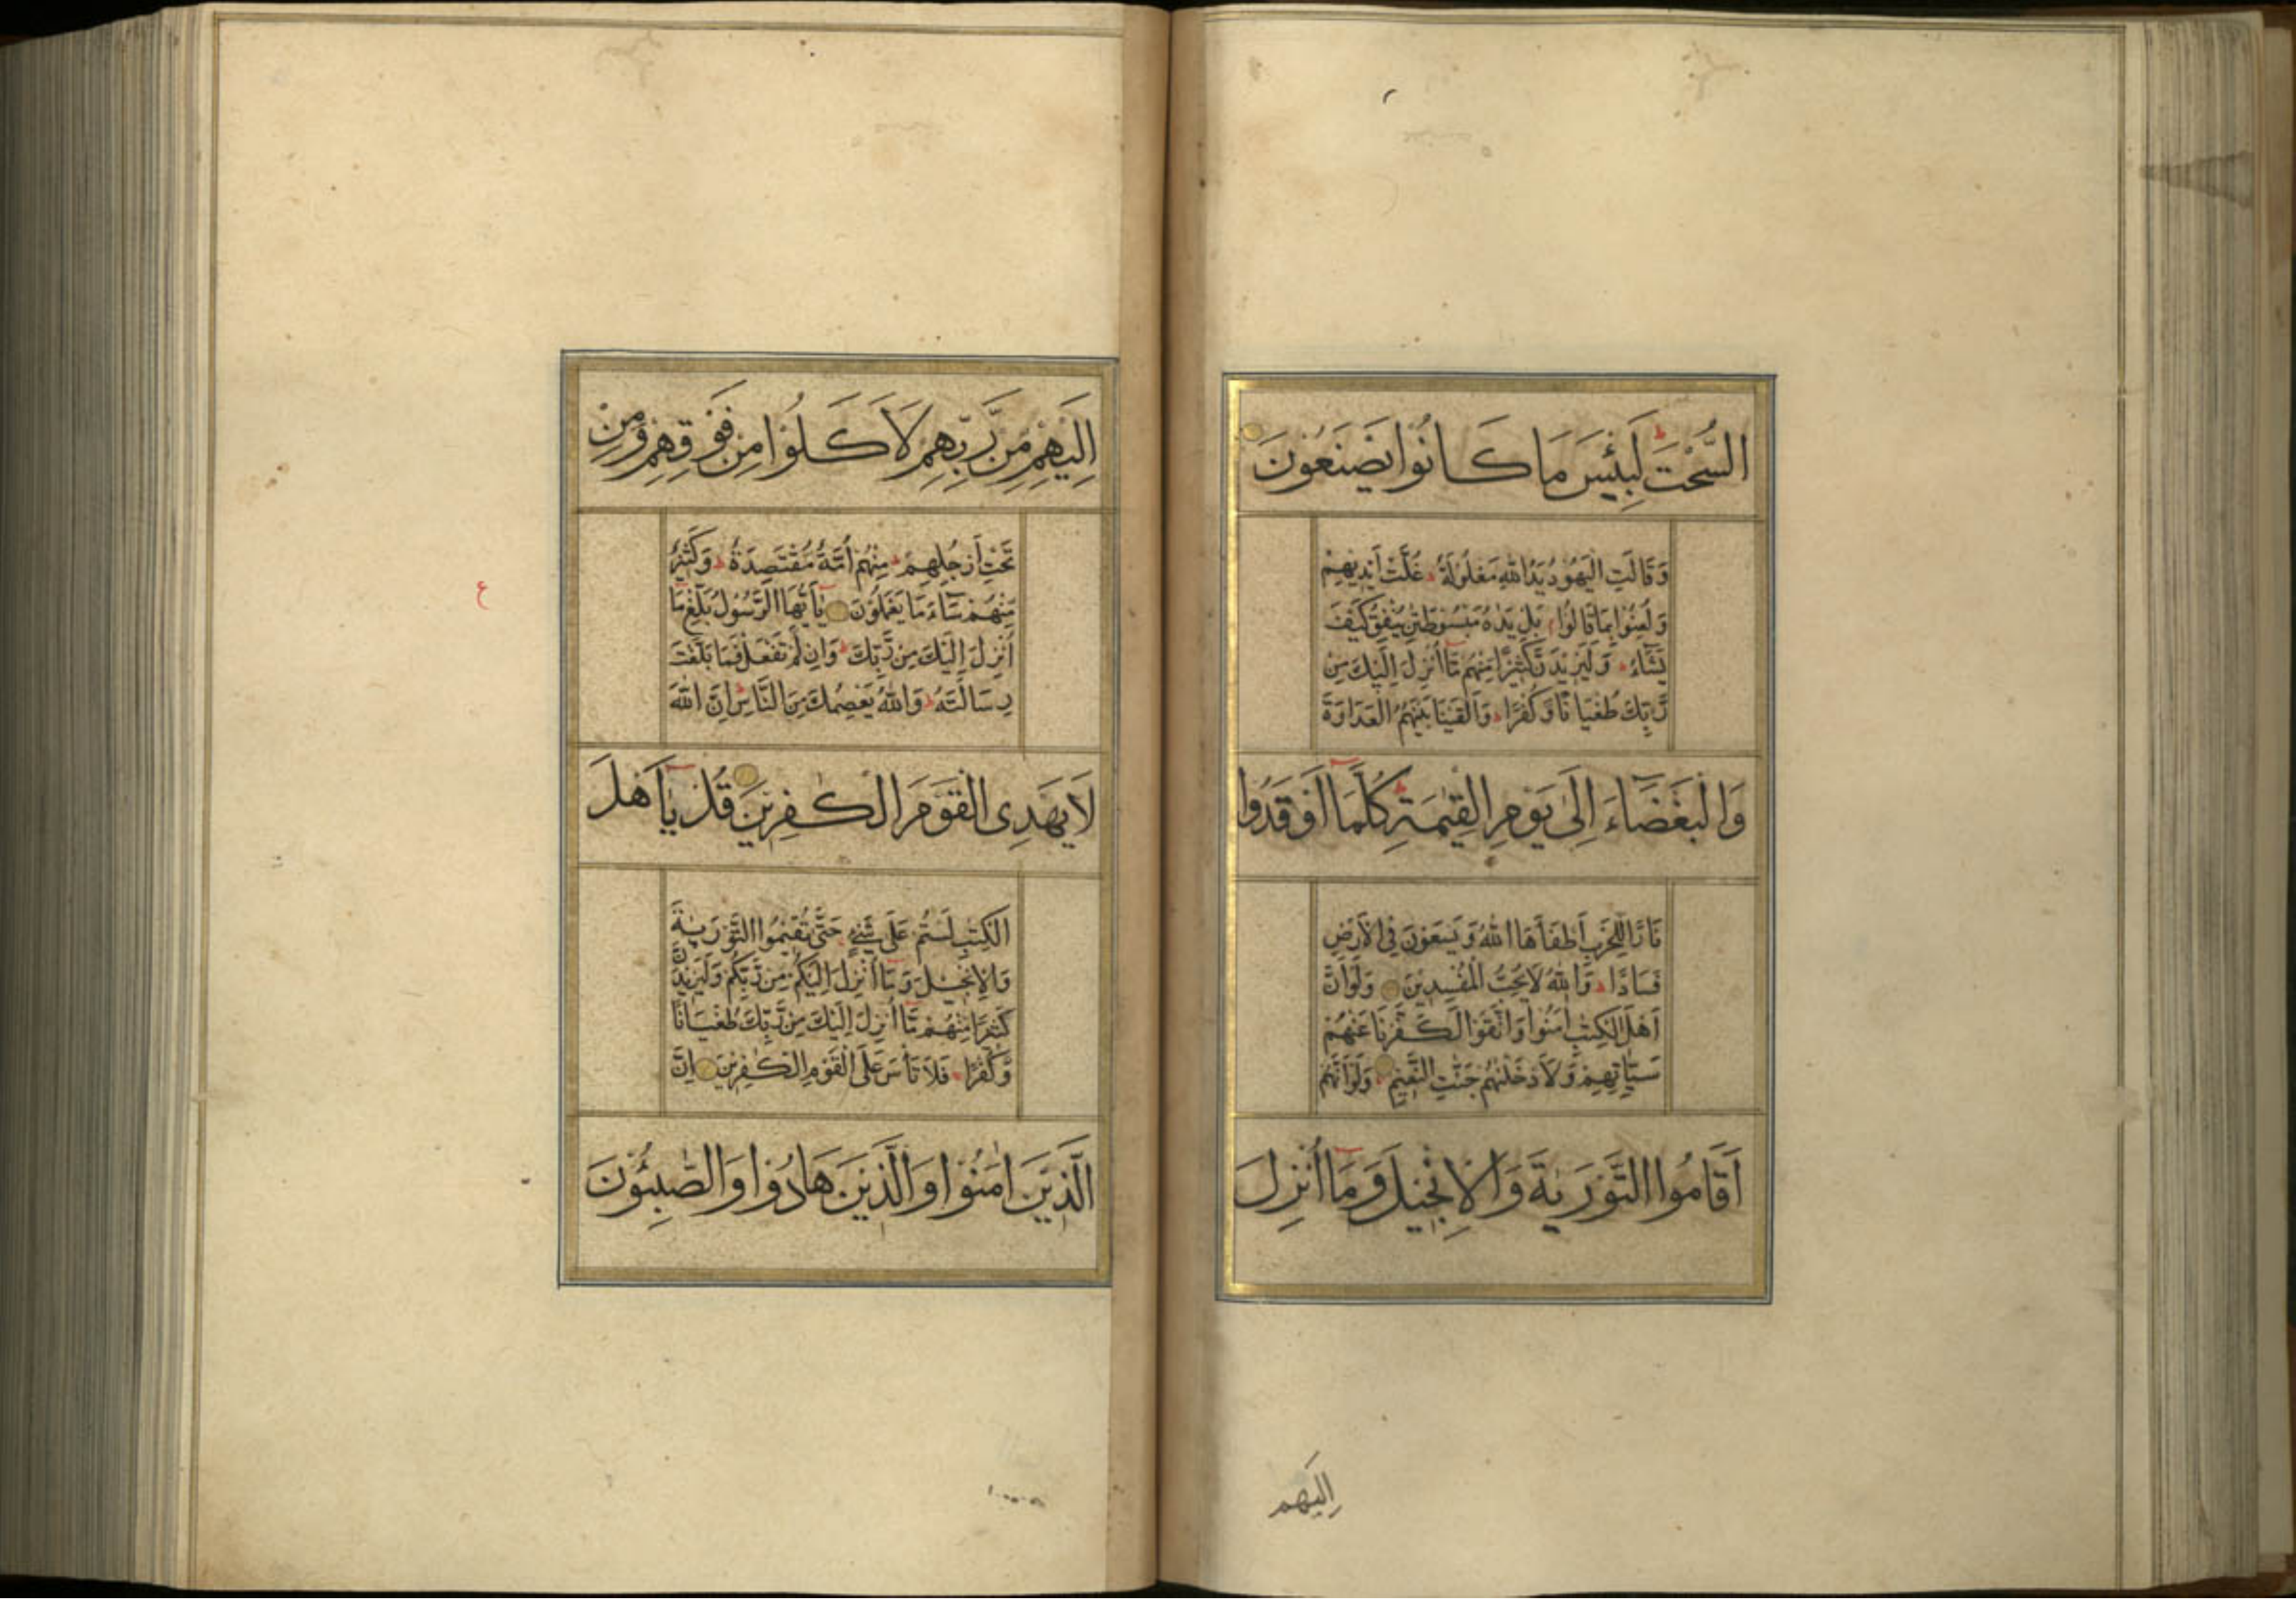 السُّحْتَ لَبِئْسَ مَا كَانُوا يَصْنَعُونَ
وَقَالَتِ الْيَهُودُ يَدُ اللّٰهِ مَغْلُولَةٌ ط غُلَّتْ اَيْدِيهِمْ
وَلُعِنُوا بِمَا قَالُوا م بَلْ يَدٰهُ مَبْسُوطَتٰنِ يُنْفِقُ كَيْفَ
يَشَٓاءُ ط وَلَيَزِيدَنَّ كَثِيرًا مِنْهُمْ مَٓا اُنْزِلَ اِلَيْكَ مِنْ
رَّبِّكَ طُغْيَانًا وَّكُفْرًا ط وَاَلْقَيْنَا بَيْنَهُمُ الْعَدَاوَةَ
وَالْبَغْضَٓاءَ اِلٰى يَوْمِ الْقِيٰمَةِ ط كُلَّمَٓا اَوْقَدُوا
نَارًا لِلْحَرْبِ اَطْفَاَهَا اللّٰهُ وَيَسْعَوْنَ فِى الْاَرْضِ
فَسَادًا ط وَاللّٰهُ لَا يُحِبُّ الْمُفْسِدِينَ وَلَوْ اَنَّ
اَهْلَ الْكِتٰبِ اٰمَنُوا وَاتَّقَوْا لَكَفَّرْنَا عَنْهُمْ
سَيِّاٰتِهِمْ وَلَاَدْخَلْنٰهُمْ جَنّٰتِ النَّعِيمِ وَلَوْ اَنَّهُمْ
اَقَامُوا التَّوْرٰيةَ وَالْاِنْجِيلَ وَمَٓا اُنْزِلَ
اِلَيْهِم
اِلَيْهِمْ مِنْ رَّبِّهِمْ لَاَكَلُوا مِنْ فَوْقِهِمْ وَمِنْ
تَحْتِ اَرْجُلِهِمْ ط مِنْهُمْ اُمَّةٌ مُقْتَصِدَةٌ ط وَكَثِيرٌ
مِّنْهُمْ سَٓاءَ مَا يَعْمَلُونَ يَٓا اَيُّهَا الرَّسُولُ بَلِّغْ مَٓا
اُنْزِلَ اِلَيْكَ مِنْ رَّبِّكَ ط وَاِنْ لَمْ تَفْعَلْ فَمَا بَلَّغْتَ
رِسَالَتَهُ ط وَاللّٰهُ يَعْصِمُكَ مِنَ النَّاسِ ط اِنَّ اللّٰهَ
لَا يَهْدِى الْقَوْمَ الْكٰفِرِينَ قُلْ يَٓا اَهْلَ
الْكِتٰبِ لَسْتُمْ عَلٰى شَىْءٍ حَتّٰى تُقِيمُوا التَّوْرٰيةَ
وَالْاِنْجِيلَ وَمَٓا اُنْزِلَ اِلَيْكُمْ مِنْ رَّبِّكُمْ وَلَيَزِيدَنَّ
كَثِيرًا مِنْهُمْ مَٓا اُنْزِلَ اِلَيْكَ مِنْ رَّبِّكَ طُغْيَانًا
وَّكُفْرًا ط فَلَا تَاْسَ عَلَى الْقَوْمِ الْكٰفِرِينَ اِنَّ
الَّذِينَ اٰمَنُوا وَالَّذِينَ هَادُوا وَالصّٰبِئُونَ
ع